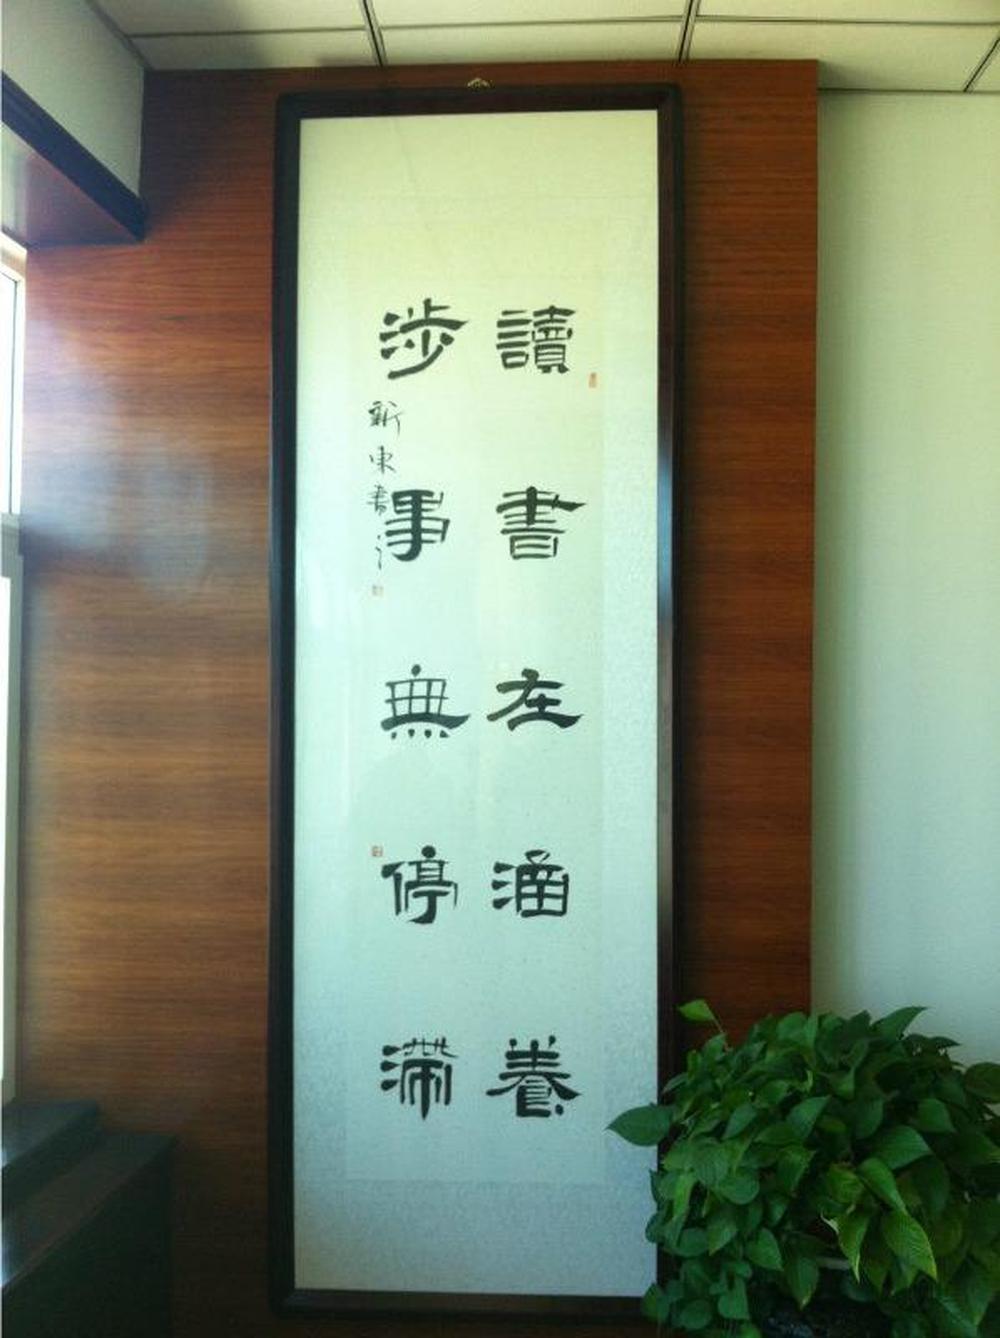 讀書在涵養
涉事無停滯
新東書